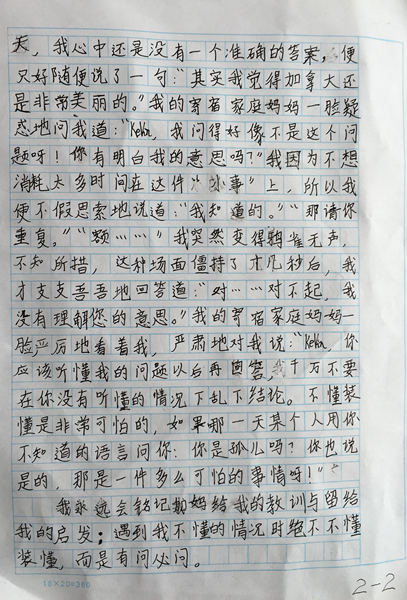 天，我心中还是没有一个准确的答案，便
只好随便说了一句：“其实我觉得加拿大还
是非常美丽的。”我的寄宿家庭妈妈一脸疑
惑地问我道：“Keka，我问得好像不是这个问
题呀！你有明白我的意思吗？”我因为不想
消耗太多时间在这件“小事”上，所以我
便不假思索地说道：“我知道的。”“那请你
重复。”“额……”我突然变得鸦雀无声，
不知所措，这种场面僵持了十几秒后，我
才支支吾吾地回答道：“对……对不起，我
没有理解您的意思。”我的寄宿家庭妈妈一
脸严厉地看着我，严肃地对我说：“Keka，你
应该听懂我的问题以后再回答，千万不要
在你没有听懂的情况下乱下结论。不懂装
懂是非常可怕的，如果哪一天某个人用你
不知道的语言问你：你是孤儿吗？你也说
是的，那是一件多么可怕的事情呀！”
我永远会铭记妈妈给我的教训与留给
我的启发；遇到我不懂的情况时绝不不懂
装懂，而是有问必问。
18×20=360
2-2